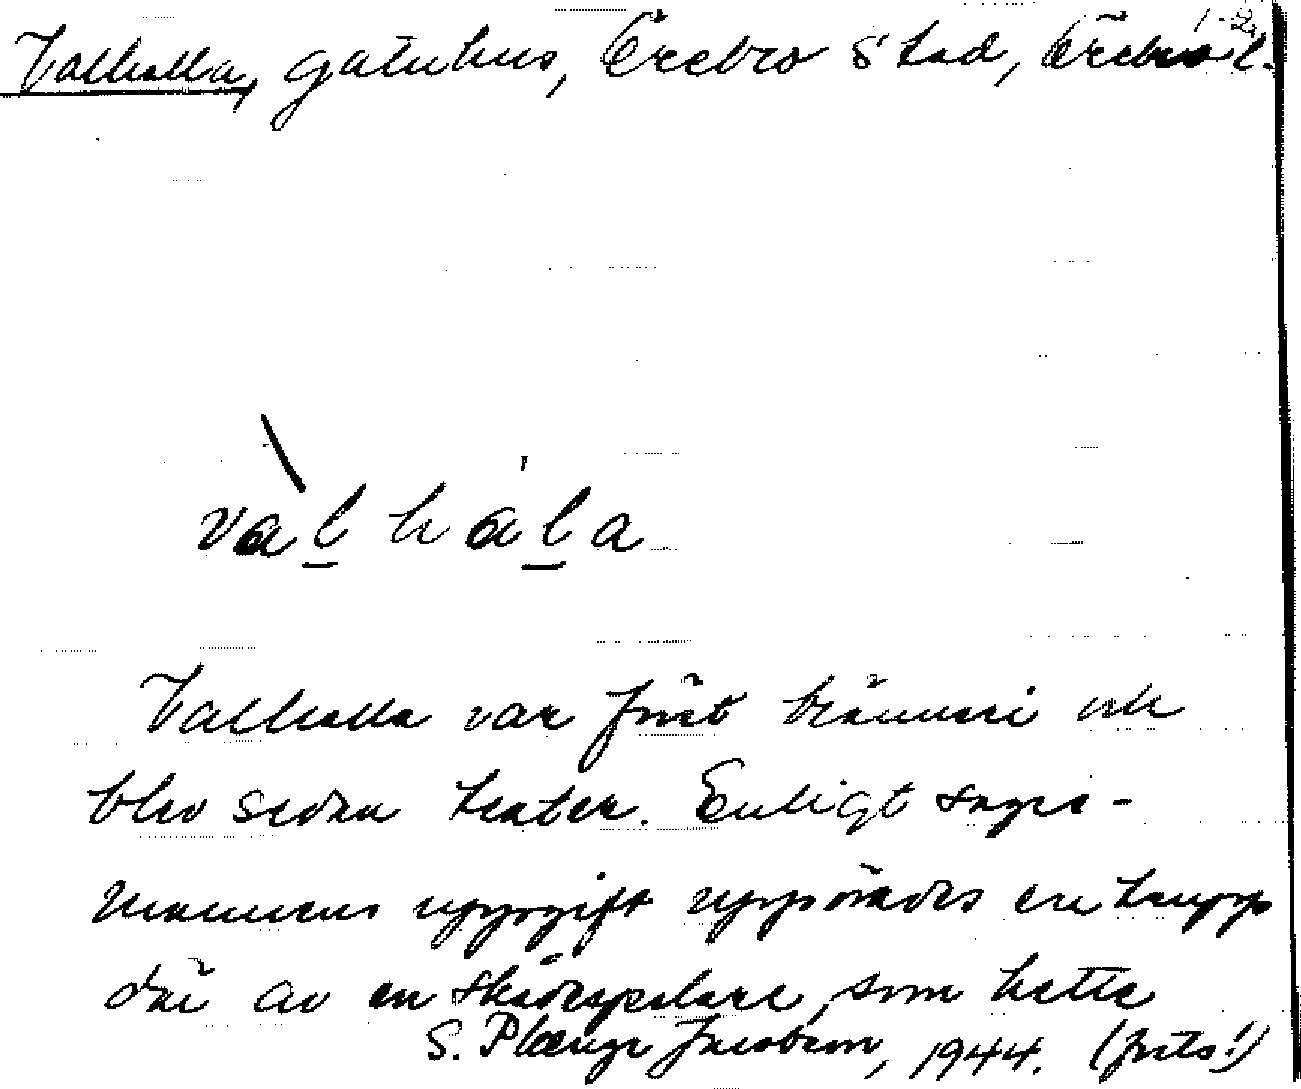 1-2.
Valhalla, gatuhus, Örebro stad, Örebro l.
val hala
Valhalla var först bränneri och
blev sedan teater. Enligt sages-
mannens uppgift uppfördes en trupp
där av en skådespelare, som hette
S. Jacobson, 1944. (forts!)